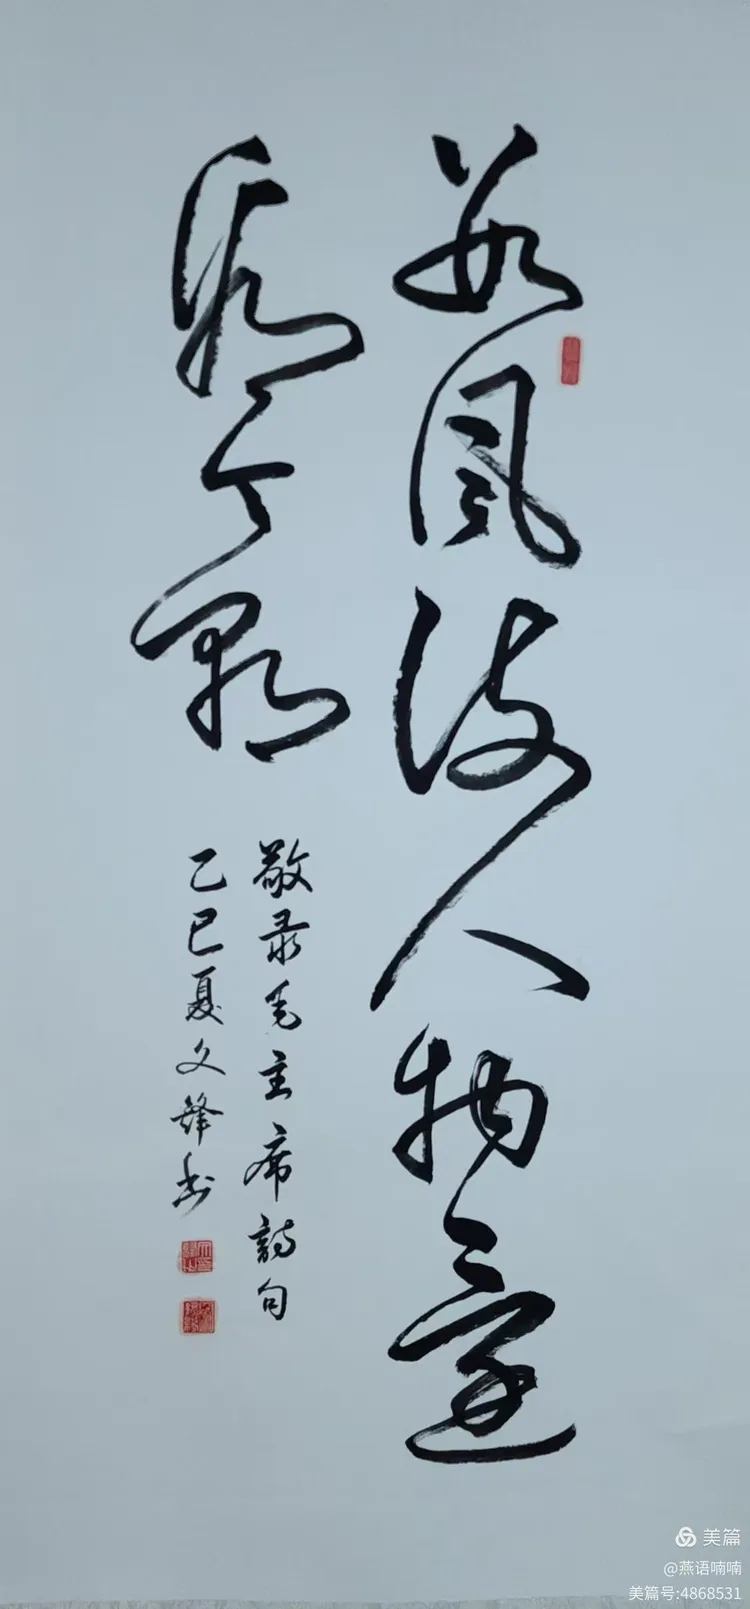 數風流人物還
看今朝
敬录毛主席詩句
乙巳夏文鋒书
美篇
@燕语喃喃
美篇号:4868531